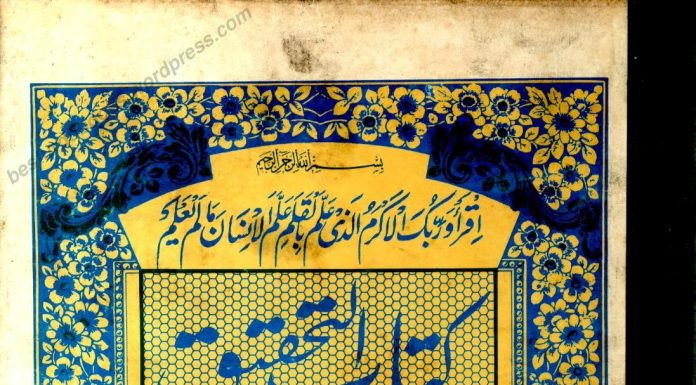 بسم الله الرحمن الرحیم
اقرأ وربک الاکرم الذی علم بالقلم علم الانسان مالم یعلم
کتاب التحقیق
wordpress.com